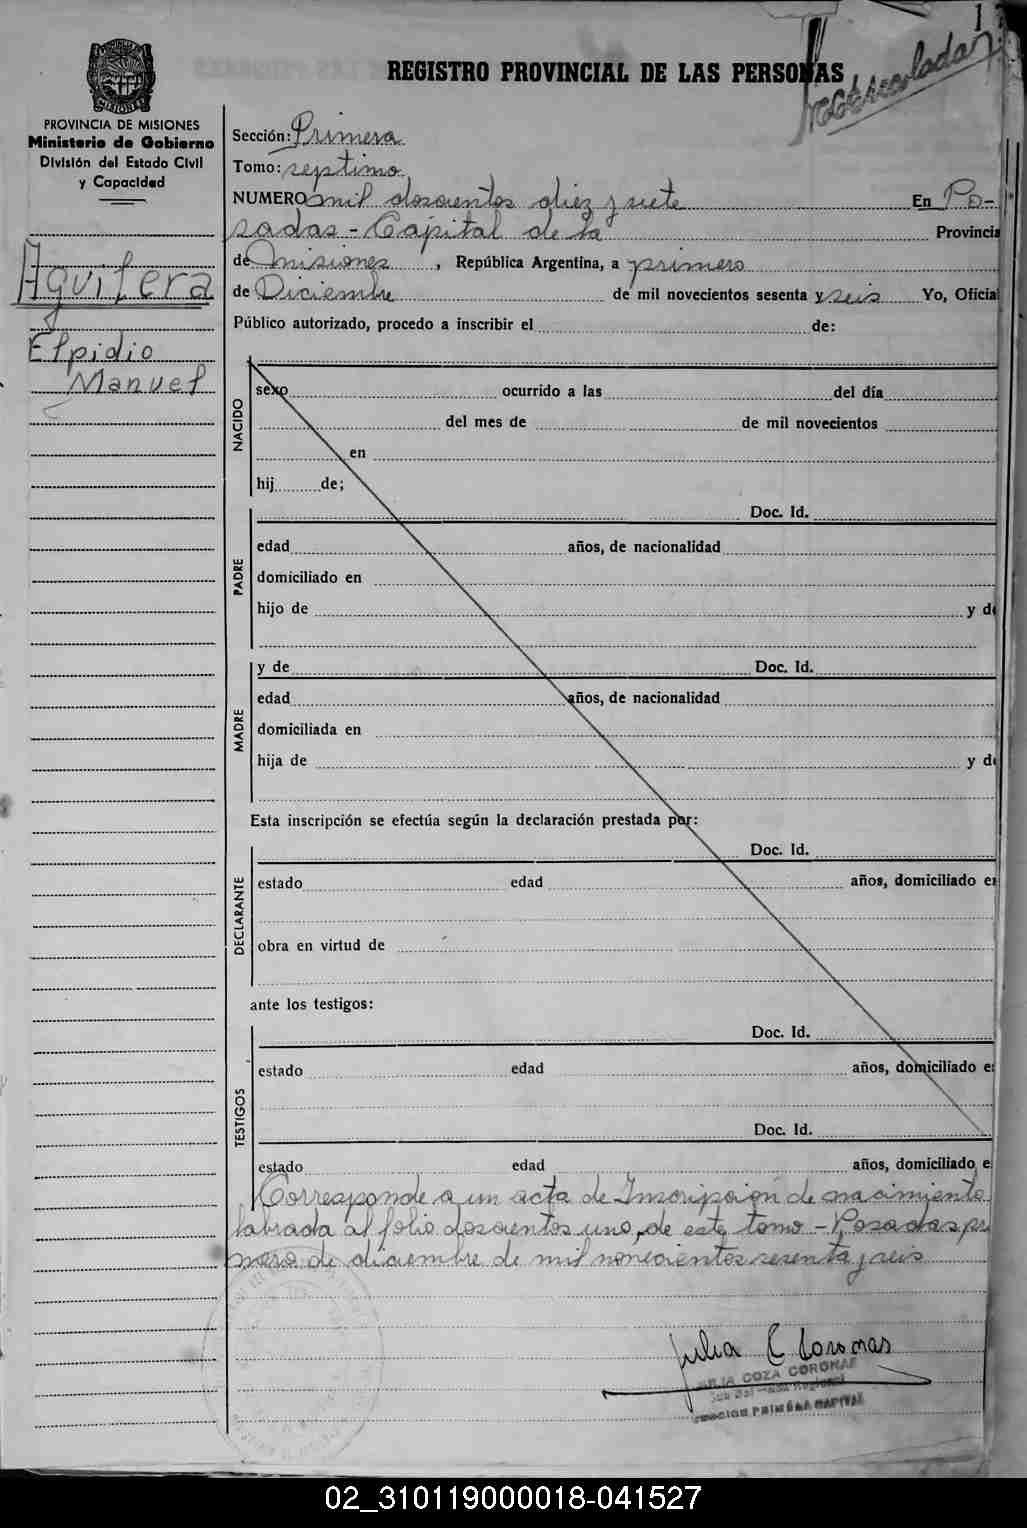 REGISTRO PROVINCIAL DE LAS PERSONAS
PROVINCIA DE MISIONES
Ministerio de Gobierno
División del Estado Civil
y Capacidad
Aguilera
Elpidio
Manuel
Sección: Primera
Tomo: septimo
NUMERO mil doscientos diez y siete En Po-
sadas - Capital de la Provincia
de Misiones, República Argentina, a primero
de Diciembre de mil novecientos sesenta y seis Yo, Oficial
Público autorizado, procedo a inscribir el de:
NACIDO
sexo ocurrido a las del día
del mes de de mil novecientos
en
hij de;
PADRE
Doc. Id.
edad años, de nacionalidad
domiciliado en
hijo de y de
MADRE
y de Doc. Id.
edad años, de nacionalidad
domiciliada en
hija de y de
Esta inscripción se efectúa según la declaración prestada por:
DECLARANTE
Doc. Id.
estado edad años, domiciliado en
obra en virtud de
ante los testigos:
TESTIGOS
Doc. Id.
estado edad años, domiciliado e
Doc. Id.
estado edad años, domiciliado, e
Corresponde a un acta de Inscripción de nacimiento
labrada al folio doscientos uno, de este tomo - Posadas, pri
mero de diciembre de mil novecientos sesenta y seis
Julia C Coronas
JULIA COZA CORONAS
SECCION PRIMERA CAPITAL
02_310119000018-041527